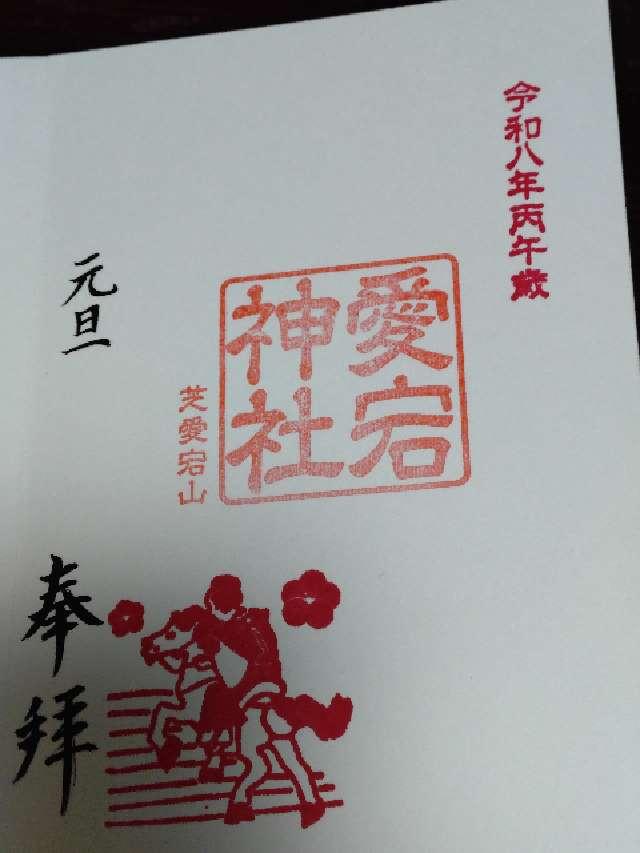 令和八年丙午歳
愛宕
神社
芝愛宕山
元旦
奉拝